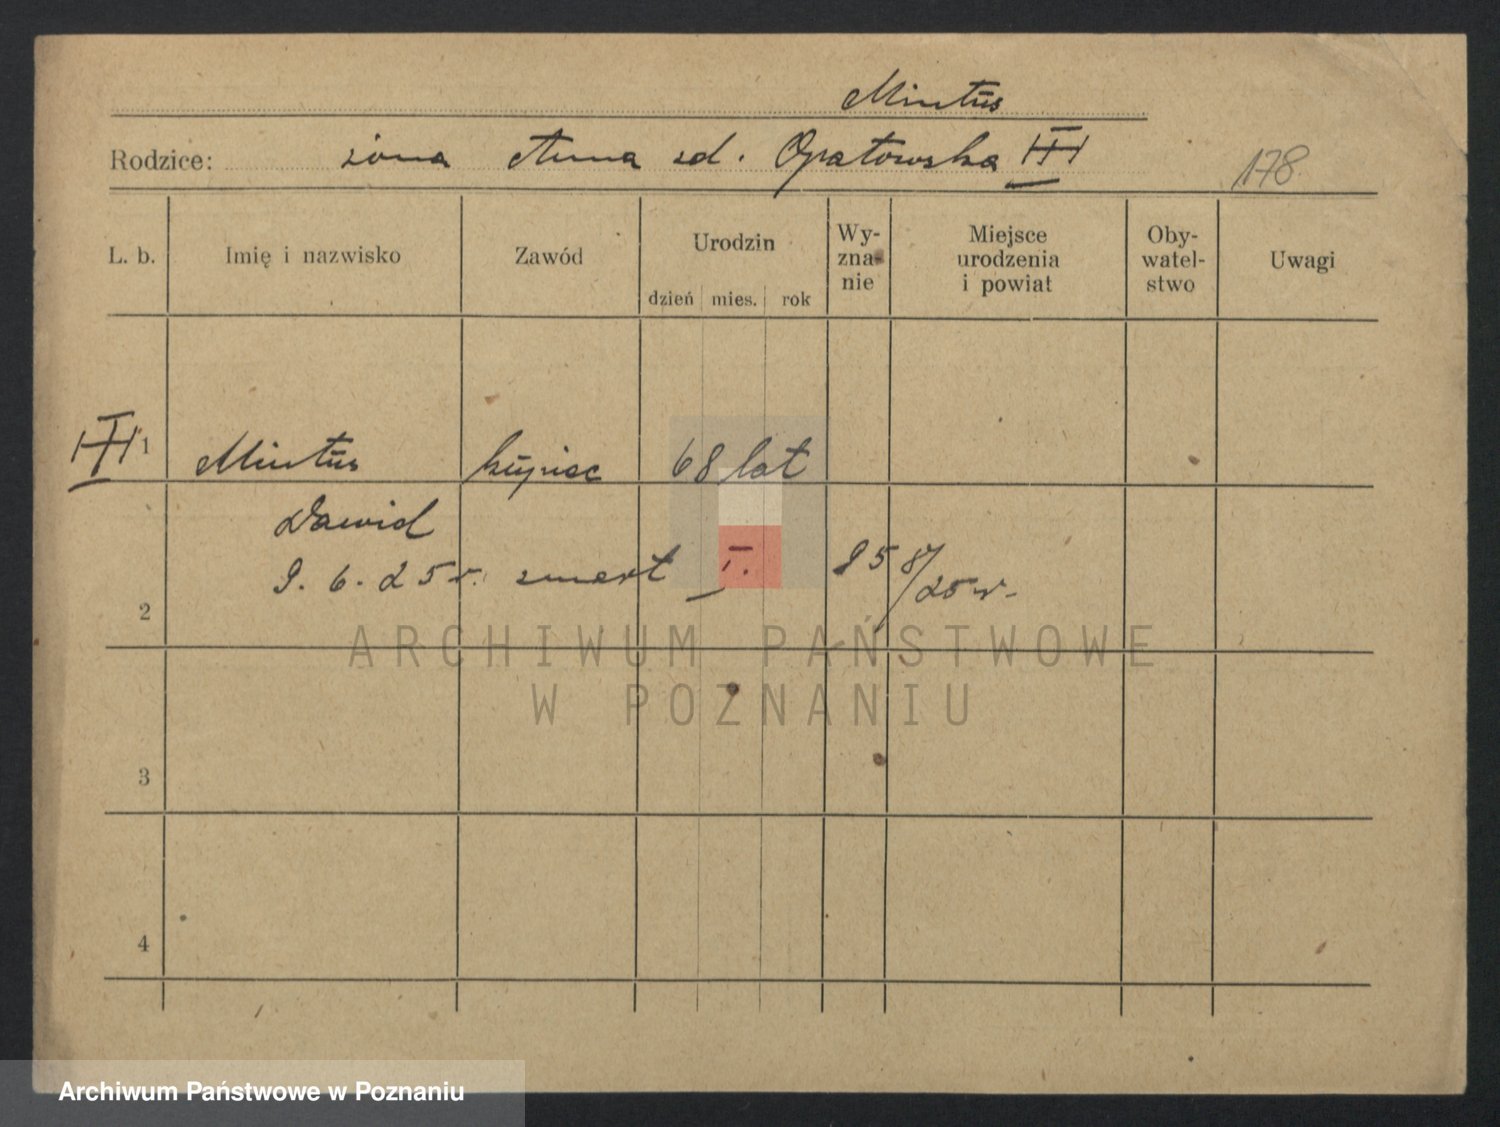 Mintus
Rodzice: żona Anna zd. Opatowska III
178
L. b. Imię i nazwisko Zawód Urodzin Wy-zna-nie Miejsce urodzenia i powiat Oby-watel-stwo Uwagi
dzień mies. rok
III 1 Mintus kupiec 68 lat
Dawid
9. 6. 25 r. zmarł I. 25 r.
2
ARCHIWUM PAŃSTWOWE
W POZNANIU
3
4
Archiwum Państwowe w Poznaniu